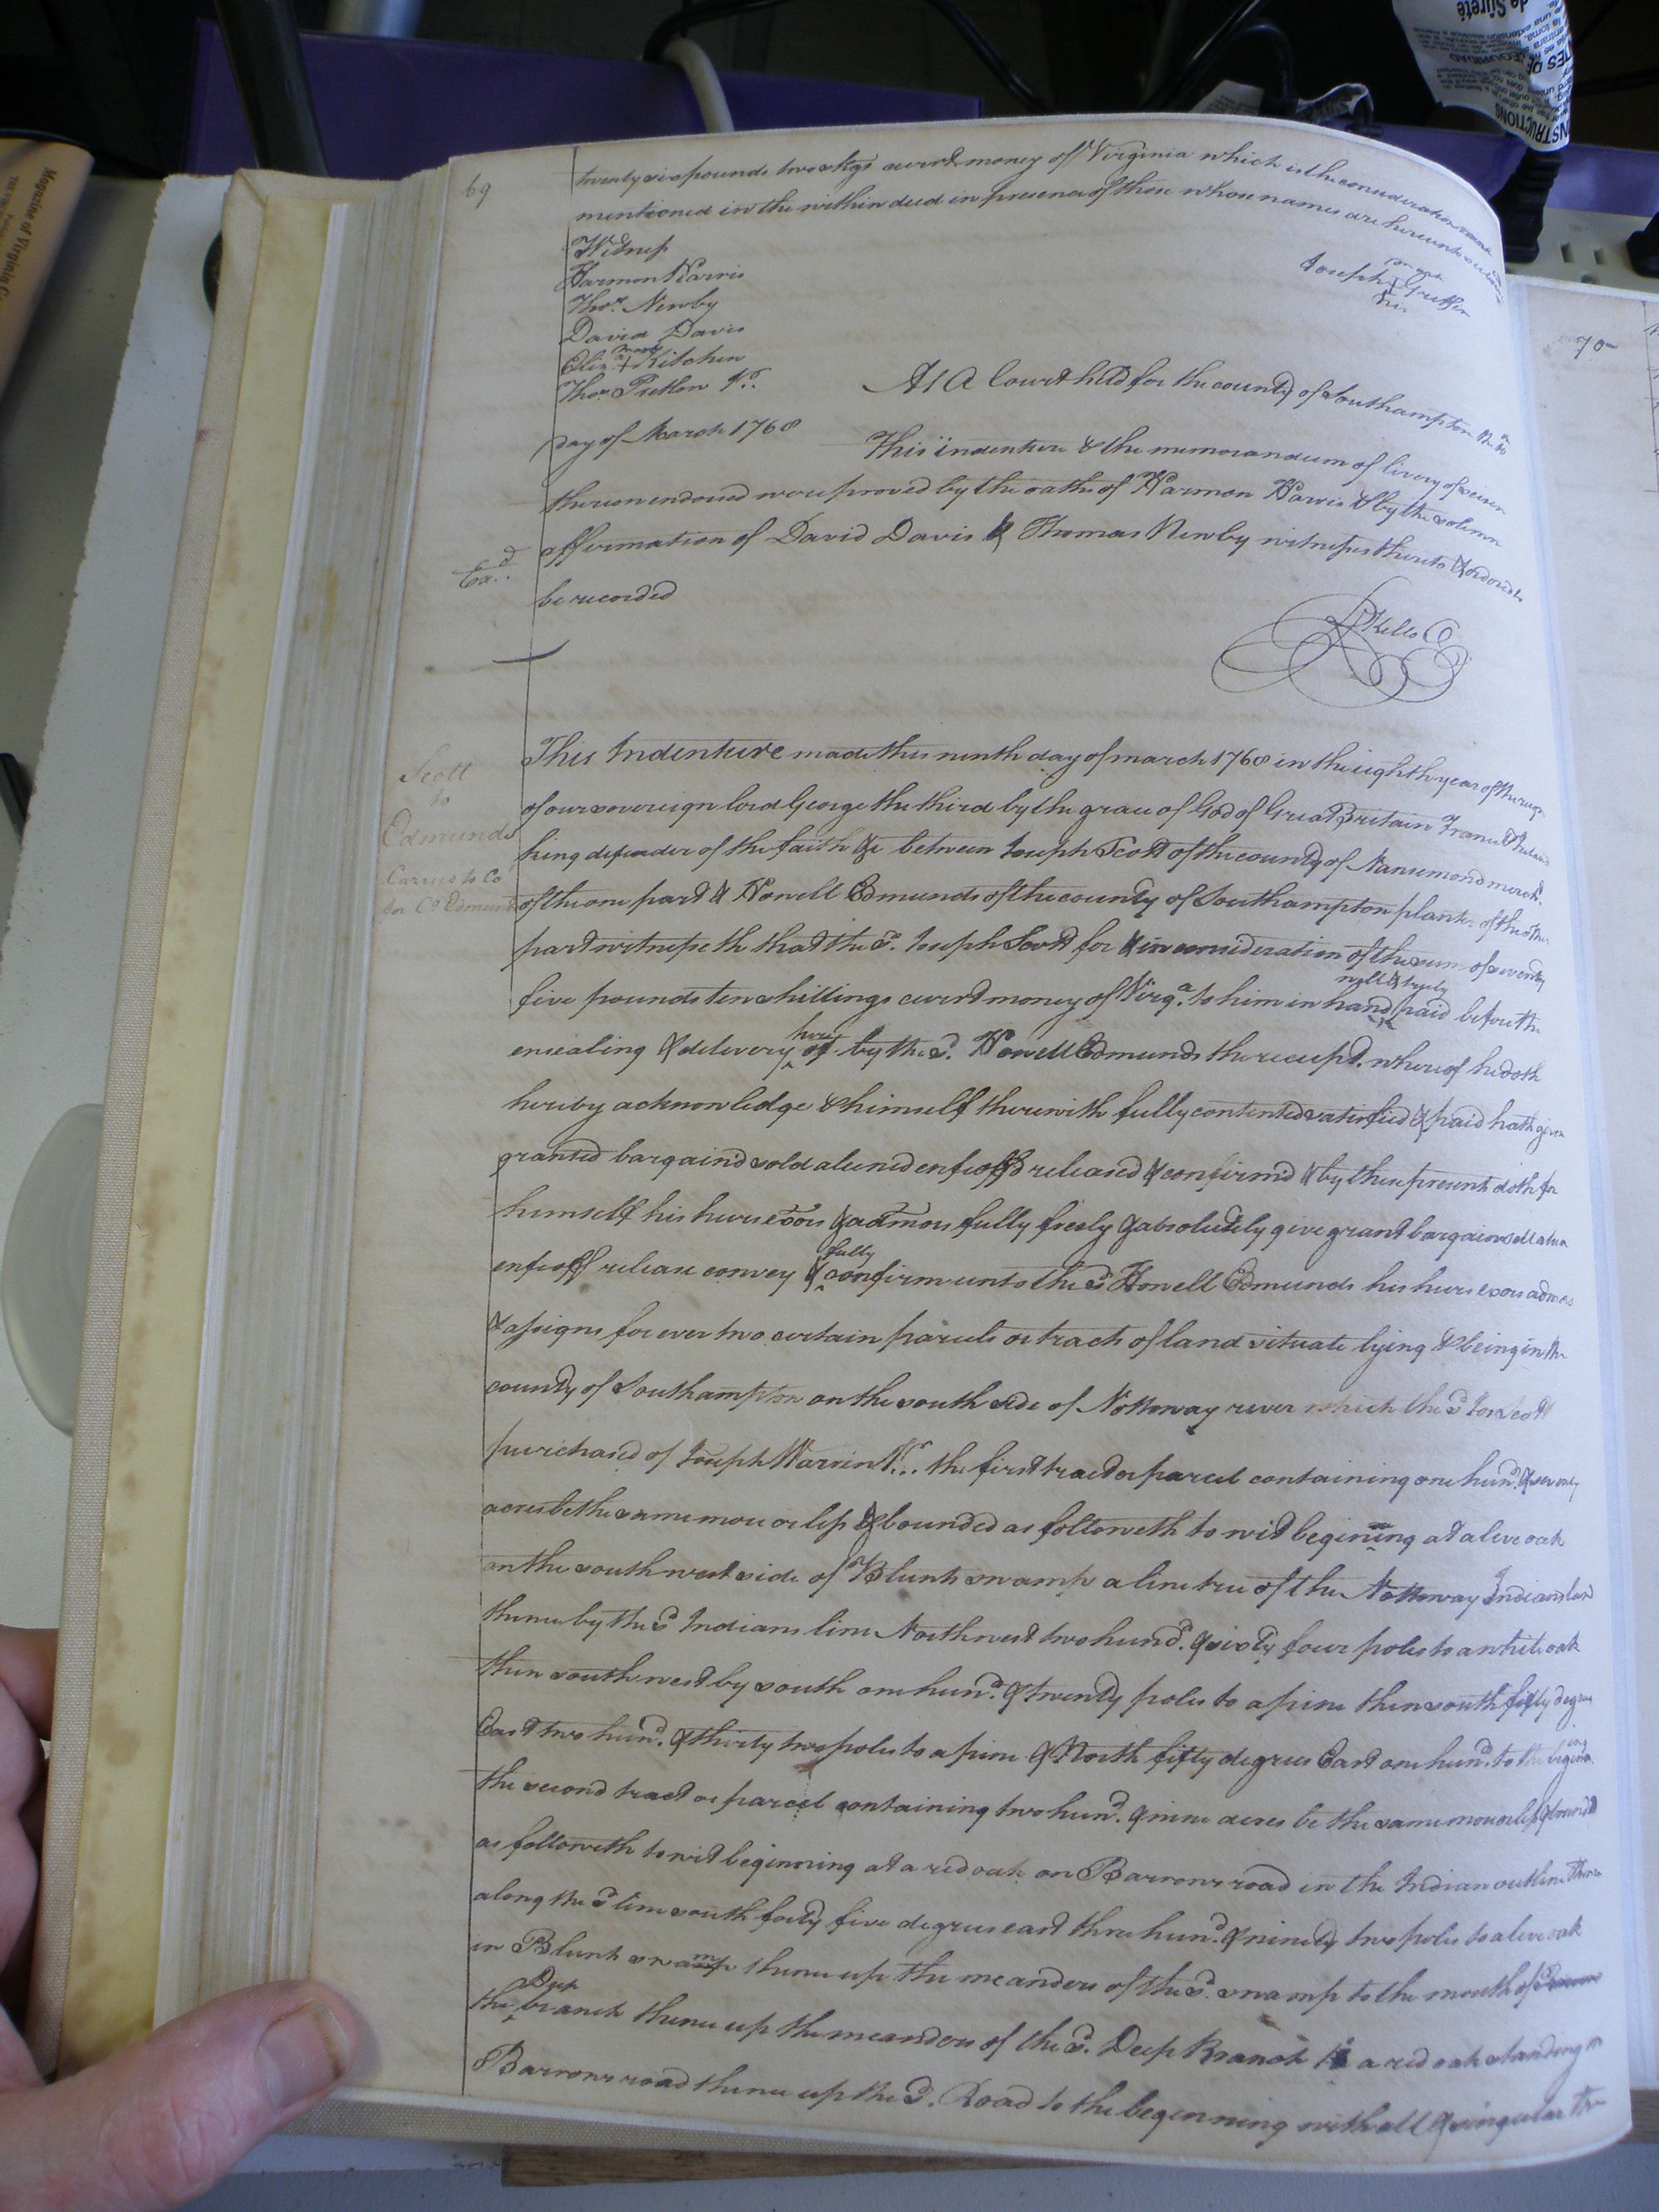 69
twenty six pounds two shgs curr.t money of Virginia which is the consideration
mentioned in the within deed in presence of those whose names are hereunto
Witness
Harmon Harris
Tho.s Newby
David Davis
Eliz.a + Kitchen
mark
Tho.s Pretlow Jr.
mark
Joseph Griffin
his
At A Court held for the county of Southampton the 10th
day of March 1768
This indenture & the memorandum of livery of seisen
thereon endorsed were proved by the oath of Harmon Harris & by the solemn
affirmation of David Davis & Thomas Newby witnesses thereto & ordered to
Ex.d
be recorded
RKello C
Scott
to
Edmunds
Carried to Co
for Co Edmunds
This Indenture made this ninth day of march 1768 in the eighth year of the reign
of our sovereign lord George the third by the grace of God of Great Britain France & Ireland
king defender of the faith &c between Joseph Scott of the county of Nansemond merch.t
of the one part & Howell Edmunds of the county of Southampton planter of the other
part witnesseth that the s.d Joseph Scott for & in consideration of the sum of seventy
five pounds ten shillings curr.t money of Virg.a to him in hand well & truly paid before the
ensealing & delivery hereof by the s.d Howell Edmunds the receipt whereof he doth
hereby acknowledge & himself therewith fully contented satisfied & paid hath given
granted bargain'd sold aliened enfeoff'd released & confirm'd & by these presents doth for
himself his heirs exors & admors fully freely & absolutely give grant bargain sell alien
enfeoff release convey & fully confirm unto the s.d Howell Edmunds his heirs exors admors
& assigns for ever two certain parcels or tracts of land situate lying & being in the
county of Southampton on the south side of Nottoway river which the s.d Jos Scott
purchased of Joseph Warren Jr. the first tract or parcel containing one hund.d & seventy
acres be the same more or less & bounded as followeth to wit begining at a live oak
on the south west side of Blunts swamp a line tree of the Nottoway Indians land
thence by the s.d Indians line Northwest two hund.d & sixty four poles to a white oak
then southwest by south one hund.d & twenty poles to a pine then south fifty degrees
East two hund.d & thirty two poles to a pine & North fifty degrees East one hund.d to the begining
the second tract or parcel containing two hund.d & nine acres be the same more or less & bounded
as followeth to wit beginning at a red oak on Barrons road in the Indian outline thence
along the s.d line south forty five degrees east three hund.d & ninety two poles to a live oak
in Blunts swamp thence up the meanders of the s.d swamp to the mouth of
the Deep branch thence up the meanders of the s.d Deep Branch to a red oak standing on
Barrons road thence up the s.d Road to the beginning with all & singular the
70
Magazine of Virginia